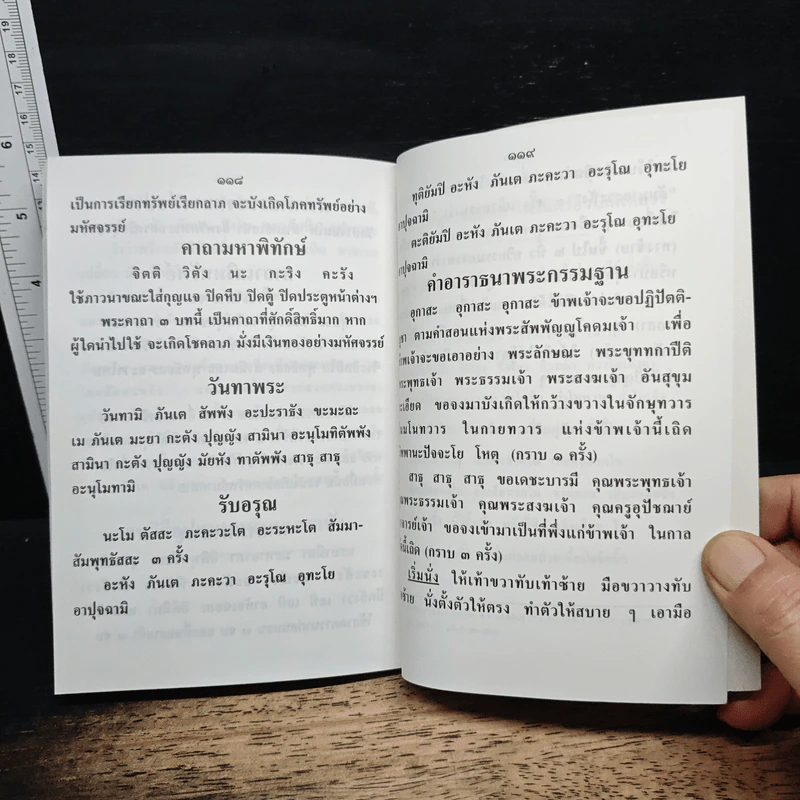 ๑๑๘
เป็นการเรียกทรัพย์เรียกลาภ จะบังเกิดโภคทรัพย์อย่าง
มหัศจรรย์
คาถามหาพิทักษ์
จิตติ วิตัง นะ กะริง คะรัง
ใช้ภาวนาขณะใส่กุญแจ ปิดหีบ ปิดตู้ ปิดประตูหน้าต่างฯ
พระคาถา ๓ บทนี้ เป็นคาถาที่ศักดิ์สิทธิ์มาก หาก
ผู้ใดนำไปใช้ จะเกิดโชคลาภ มั่งมีเงินทองอย่างมหัศจรรย์
วันทาพระ
วันทามิ ภันเต สัพพัง อะปะราธัง ขะมะถะ
เม ภันเต มะยา กะตัง ปุญญัง สามินา อะนุโมทิตัพพัง
สามินา กะตัง ปุญญัง มัยหัง ทาตัพพัง สาธุ สาธุ
อะนุโมทามิ
รับอรุณ
นะโม ตัสสะ ภะคะวะโต อะระหะโต สัมมา-
สัมพุทธัสสะ ๓ ครั้ง
อะหัง ภันเต ภะคะวา อะรุโณ อุทะโย
อาปุจฉามิ
๑๑๙
ทุติยัมปิ อะหัง ภันเต ภะคะวา อะรุโณ อุทะโย
อาปุจฉามิ
ตะติยัมปิ อะหัง ภันเต ภะคะวา อะรุโณ อุทะโย
อาปุจฉามิ
คำอาราธนาพระกรรมฐาน
อุกาสะ อุกาสะ อุกาสะ ข้าพเจ้าจะขอปฏิปัตติ-
บูชา ตามคำสอนแห่งพระสัพพัญญูโคดมเจ้า เพื่อ
ข้าพเจ้าจะขอเอาอย่าง พระลักษณะ พระขุททกาปีติ
พระพุทธเจ้า พระธรรมเจ้า พระสงฆเจ้า อันสุขุม
ละเอียด ขอจงมาบังเกิดให้กว้างขวางในจักษุทวาร
มโนทวาร ในกายทวาร แห่งข้าพเจ้านี้เถิด
นิพพานะปัจจะโย โหตุ (กราบ ๑ ครั้ง)
สาธุ สาธุ สาธุ ขอเดชะบารมี คุณพระพุทธเจ้า
คุณพระธรรมเจ้า คุณพระสงฆเจ้า คุณครูอุปัชฌาย์
อาจารย์เจ้า ขอจงเข้ามาเป็นที่พึ่งแก่ข้าพเจ้า ในกาล
นี้เถิด (กราบ ๓ ครั้ง)
เริ่มนั่ง ให้เท้าขวาทับเท้าซ้าย มือขวาวางทับ
ซ้าย นั่งตั้งตัวให้ตรง ทำตัวให้สบาย ๆ เอามือ
19
18
17
16
15
14
13
12
6
5